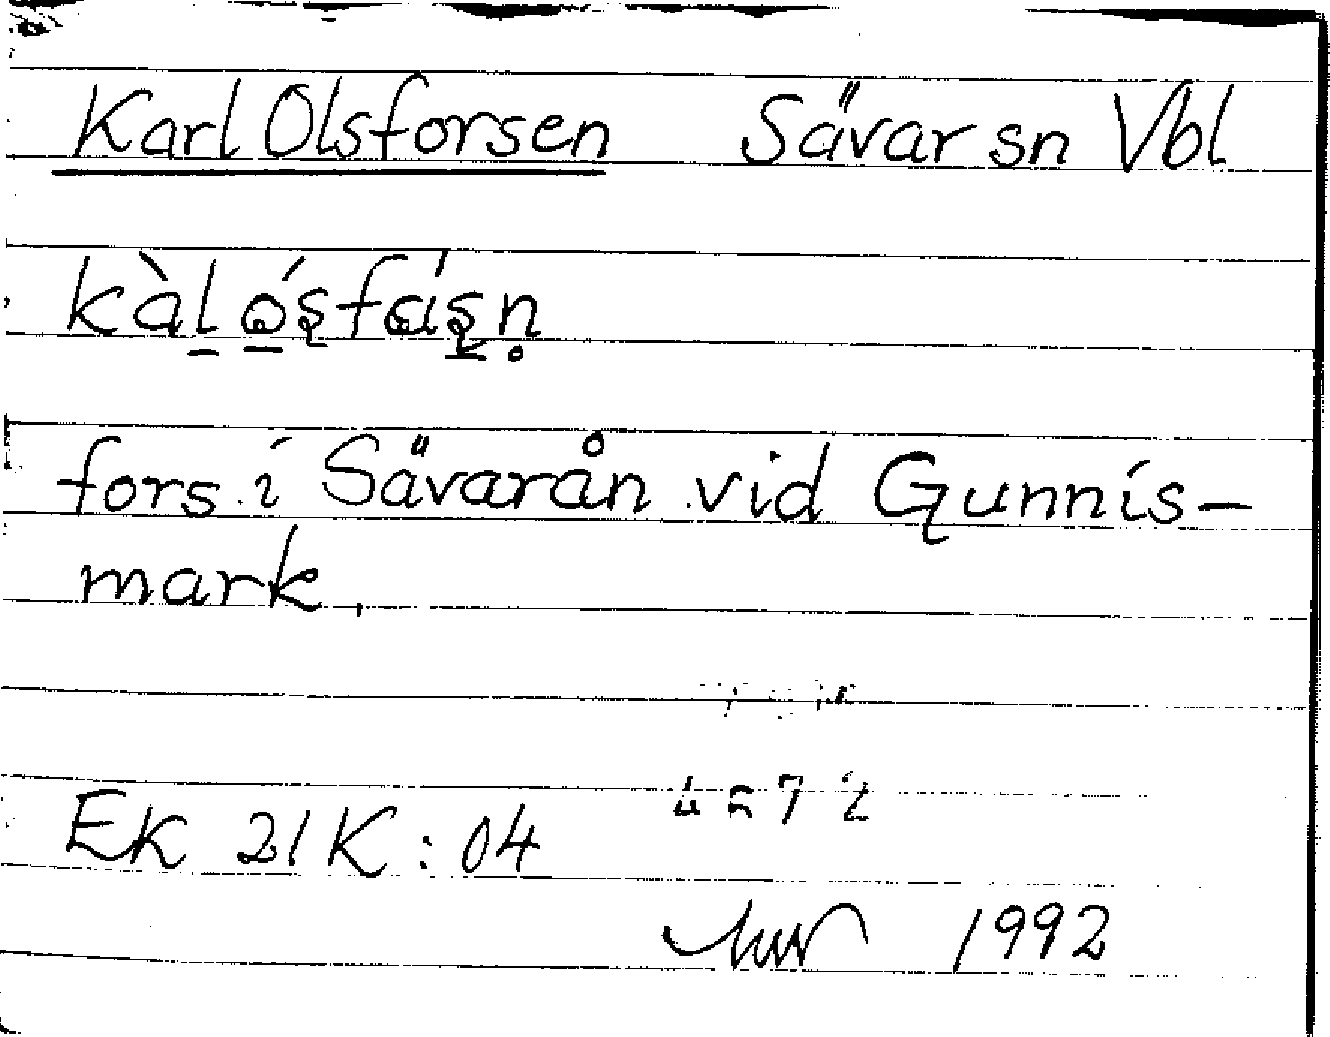 Karl Olsforsen Sävar sn Vbl
kàl̠ ó̠şfáş̠n̥
fors i Sävarån vid Gunnis-
mark.
EK 21K:04
1992